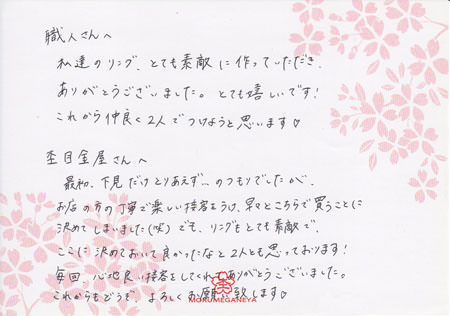 職人さんへ
私達のリング、とても素敵に作っていただき、
ありがとうございました。とても嬉しいです!
これから仲良く2人でつけようと思います♡
杢目金屋さんへ
最初、下見だけとりあえず…のつもりでしたが、
お店の方の丁寧で楽しい接客をうけ、早々とこちらで買うことに
決めてしまいました(笑)でも、リングもとても素敵で、
ここに決めておいて良かったなと2人とも思っております!
毎回、心地良い接客をしてくれてありがとうございました。
これからもどうぞ、よろしくお願い致します♡
MOKUMEGANEYA